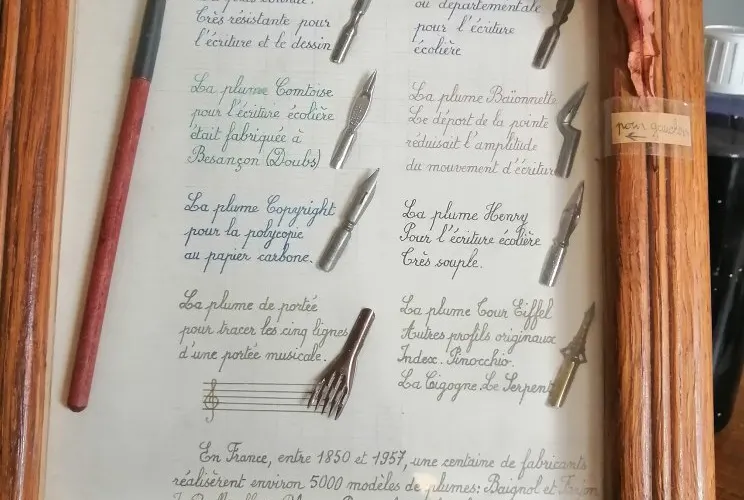 Très résistante pour
l'écriture et le dessin
ou départementale
pour l'écriture
écolière
La plume Comtoise
pour l'écriture écolière
était fabriquée à
Besançon (Doubs)
La plume Baïonnette
Le déport de la pointe
réduisait l'amplitude
du mouvement d'écriture
pour gaucher
La plume Copyright
pour la polycopie
au papier carbone.
La plume Henry
Pour l'écriture écolière
Très souple.
La plume de portée
pour tracer les cinq lignes
d'une portée musicale.
La plume Tour Eiffel
Autres profils originaux
Index. Pinocchio.
La Cigogne. Le Serpent
En France, entre 1850 et 1957, une centaine de fabricants
réalisèrent environ 5000 modèles de plumes: Baignol et